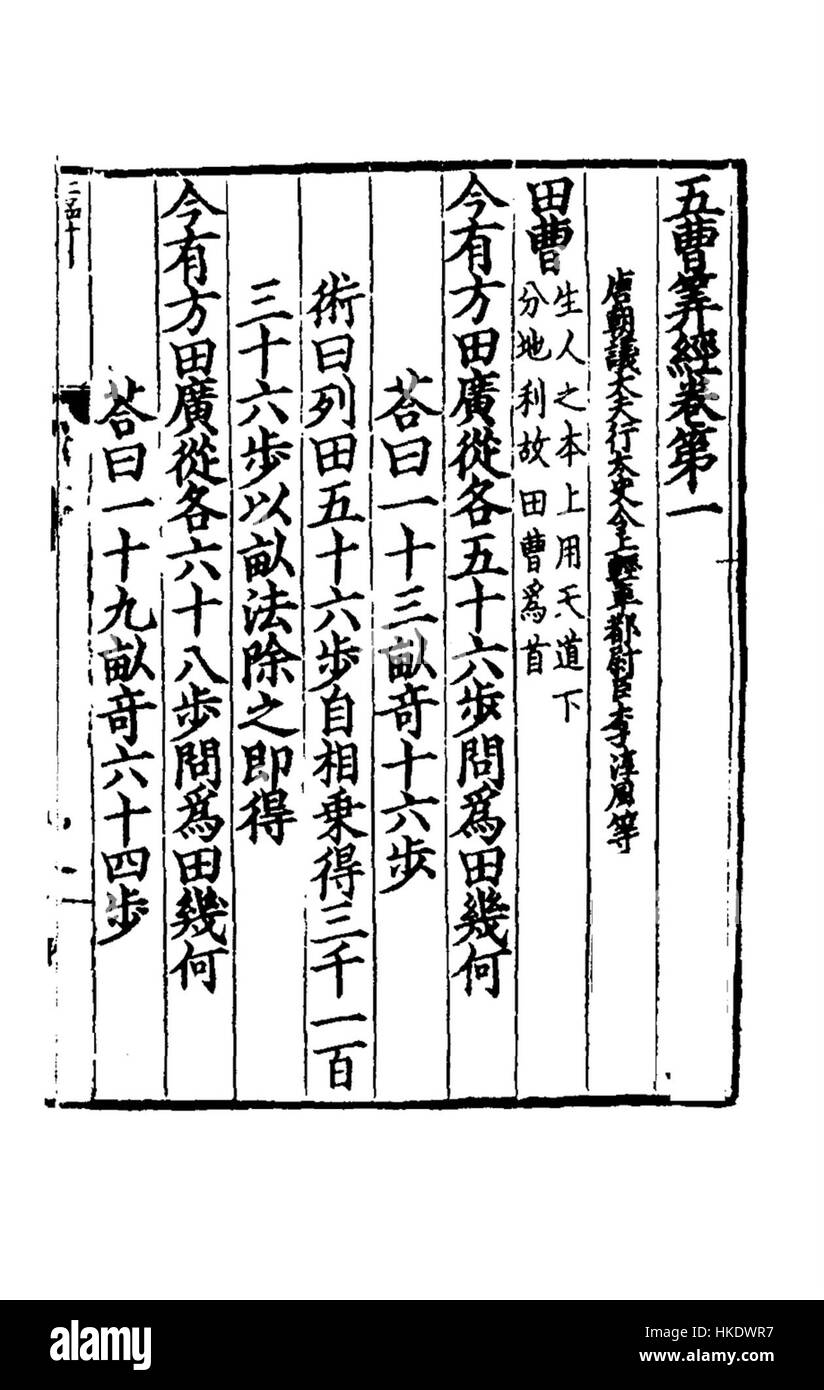 五曹筭經卷第一
唐朝議大夫行太史令上輕車都尉臣李淳風等
田曹 生人之本上用天道下
分地利故田曹爲首
今有方田廣從各五十六步問爲田幾何
荅曰一十三畝竒十六步
術曰列田五十六步自相乗得三千一百
三十六步以畝法除之即得
今有方田廣從各六十八步問爲田幾何
荅曰一十九畝竒六十四步
alamy
Image ID: HKDWR7
www.alamy.com